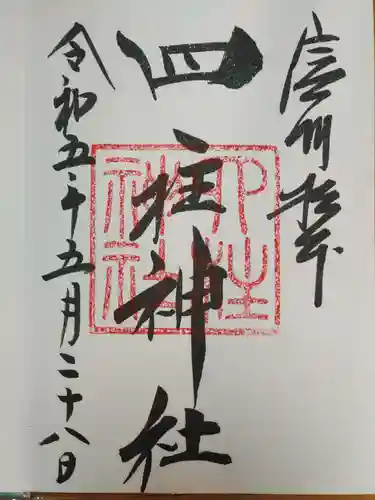 信州松本
四柱神社
令和五年五月二十八日
四柱神社